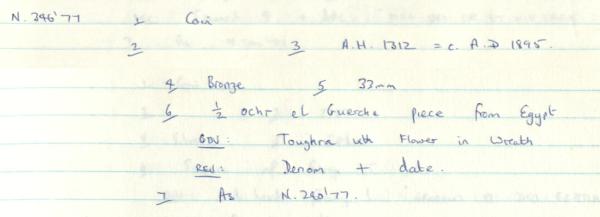 N. 346'77 1 Coin
2 3 A.H. 1312 = c. A.D 1895.
4 Bronze 5 33mm
6 1/2 ochr el Guerche piece from Egypt
OBV: Toughra with Flower in Wreath
REV: Denom + date.
7 As N. 290'77.